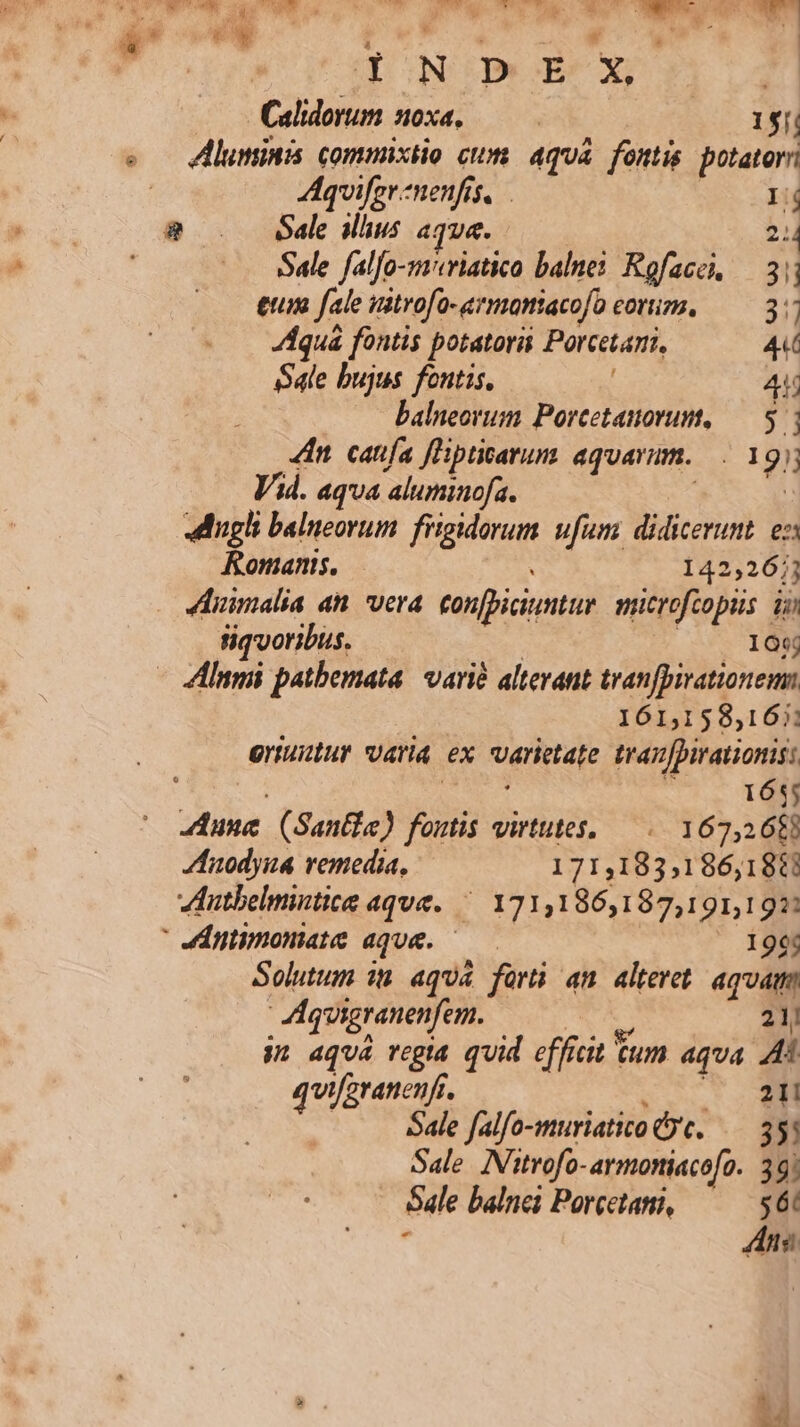 INDEX.
Calidorum noxa.
Aluminis commixtio cum aquâ fontis potatorii
Aquisgranensis.
Sale illius aquæ.
Sale salso-muriatico balnei Rosacei,
cum sale nitroso-armoniaco/o eorum.
Aquâ fontis potatorii Porcetani.
Sale hujus fontis.
balneorum Porcetanorum.
An causa stipticarum aquarum.
Vid. aqua aluminosa.
Angli balneorum frigidorum usum didicerunt ex
Romanis. 142,26
Animalia an vera conspiciuntur microscopiis in
liquoribus.
Alnmi pathemata variè alterant transpirationem
161,158,16
oriuntur varia ex varietate transpirationis:
Annæ (Sanctæ) fontis virtutes. 167,268
Anodyna remedia, 171,183,186,188
Anthelminticæ aquæ. 171,186,187,191,192
Antimoniatæ aquæ.
Solutum in aquâ forti an alteret aquam
Aquisgranensem. 21
in aquâ regia quid efficit cum aqua A
quisgranensi. 21
Sale salso-muriatico &c. 35
Sale Nitroso-armoniacoso. 39
Sale balnei Porcetani, 56
An